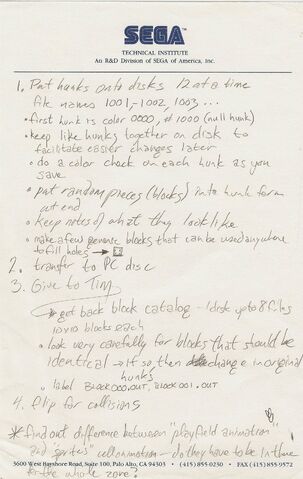 SEGA
TECHNICAL INSTITUTE
An R&D Division of SEGA of America, Inc.
1. Put hunks onto disks 12 at a time
file names 1001, 1002, 1003, ...
• first hunk is color 0000, & 1000 (null hunk)
• keep like hunks together on disk to
facilitate easier changes later
• do a color check on each hunk as you
save
• put random pieces (blocks) into hunk form
at end
• keep notes of what they look like
• make a few generic blocks that can be used anywhere
to fill holes →
2. transfer to PC disc
3. Give to Tim
* get back block catalog - 1 disk up to 8 files
10x10 blocks each
• look very carefully for blocks that should be
identical → If so, then change in original
hunks
• label BLOCK000.OUT, BLOCK001.OUT
4. flip for collisions
* find out difference between "playfield animation"
and "sprites" cell animation - do they have to be in there
for the whole zone?
3600 West Bayshore Road, Suite 100, Palo Alto, CA 94303 • (415) 855-0230 • FAX (415) 855-9572